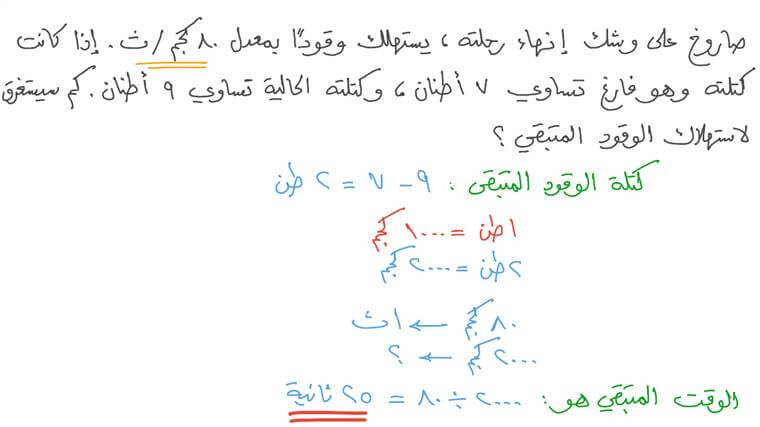 صاروخ على وشك إنهاء رحلته، يستهلك وقودًا بمعدل ٨٠ كجم/ث. إذا كانت
كتلته وهو فارغ تساوي ٧ أطنان، وكتلته الحالية تساوي ٩ أطنان. كم سيستغرق
لاستهلاك الوقود المتبقي؟
كتلة الوقود المتبقي: ٩ - ٧ = ٢ طن
١ طن = ١٠٠٠ كجم
٢ طن = ٢٠٠٠ كجم
٨٠ كجم ← ١ ث
٢٠٠٠ كجم ← ؟
الوقت المتبقي هو: ٢٠٠٠ ÷ ٨٠ = ٢٥ ثانية